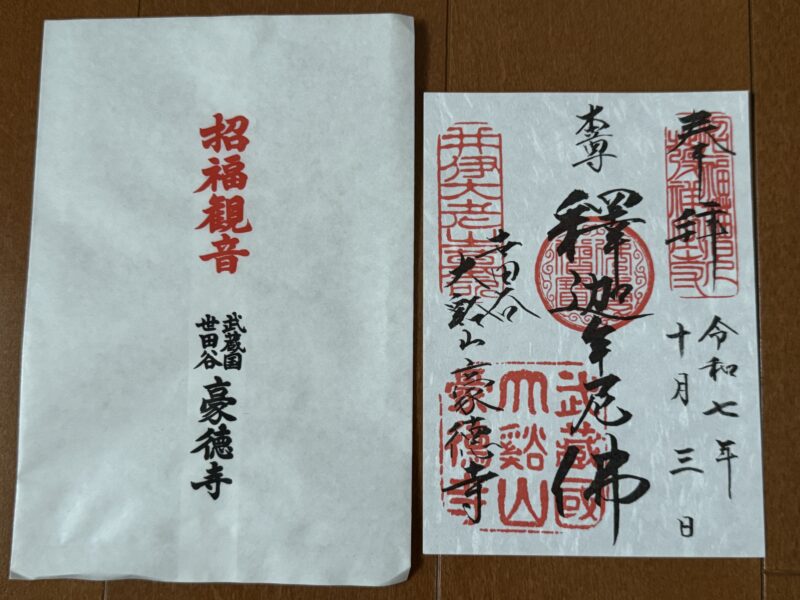 招福観音
武蔵国
世田谷
豪徳寺
奉拝
令和七年
十月三日
本尊
釋迦牟尼佛
世田谷
大谿山豪德寺
井伊大老
武藏國
大谿山
豪德寺